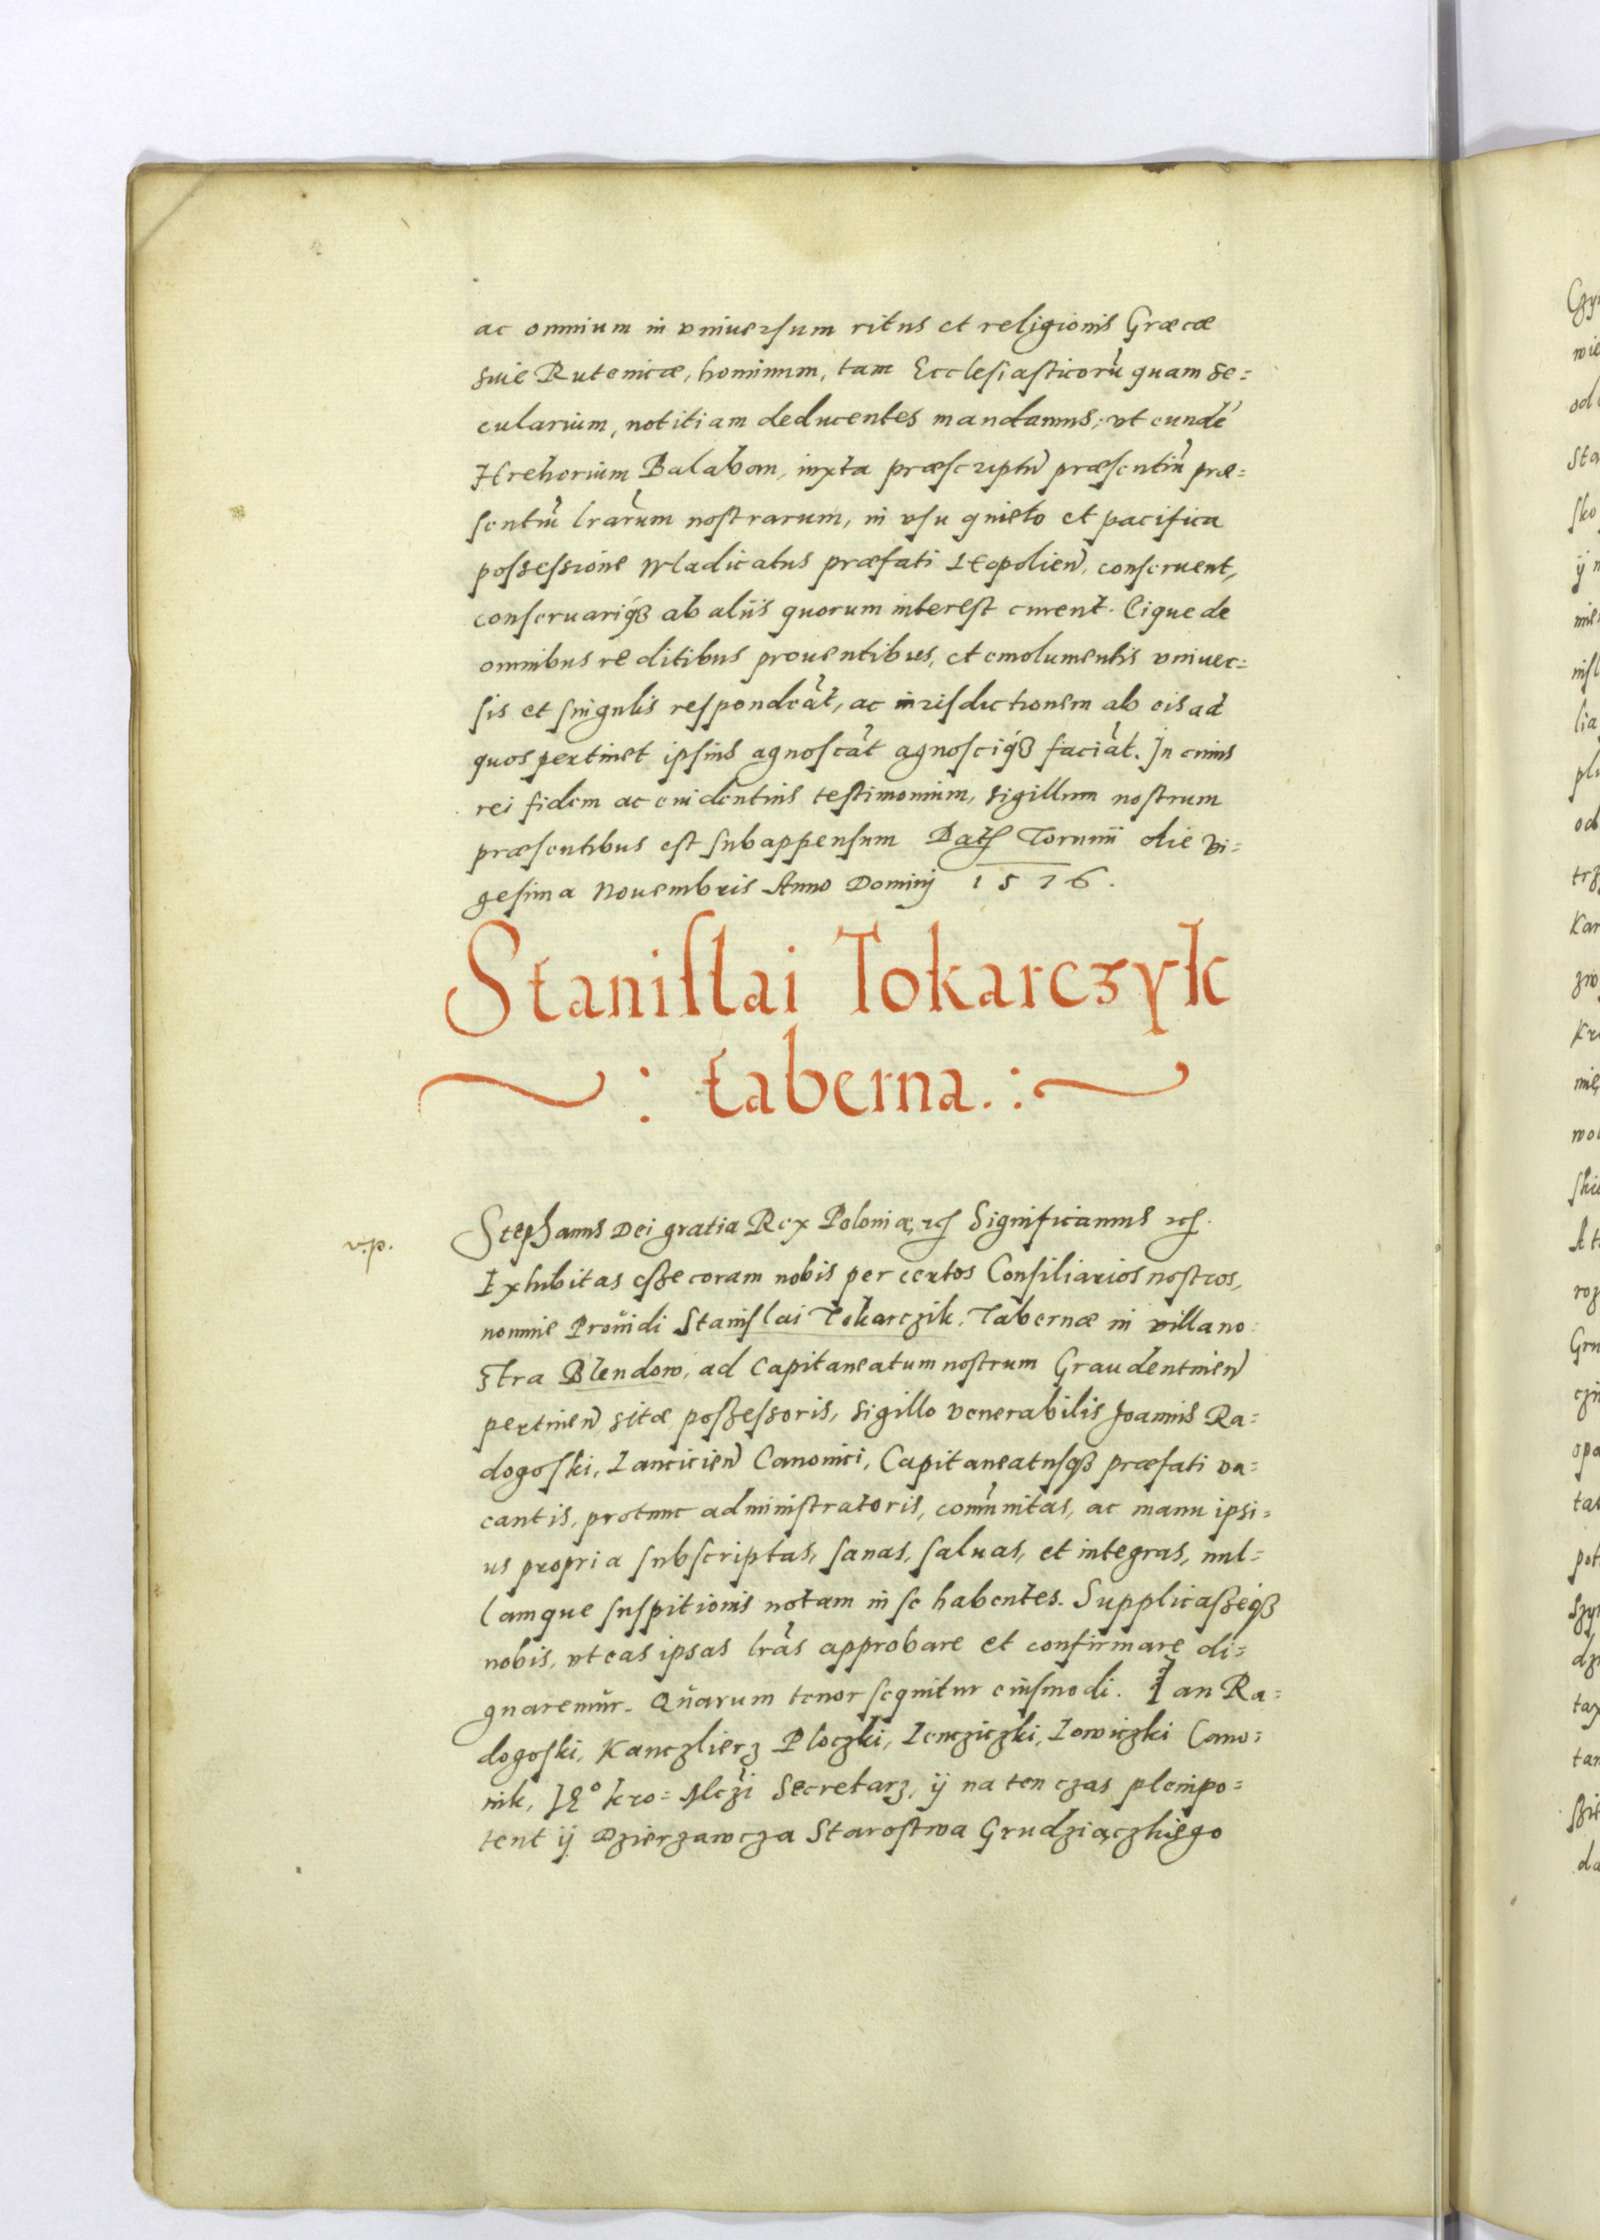 ac omnium in vniuersum ritus et religionis Græcæ
siue Rutenicæ, hominum, tam Ecclesiasticorũ quam se=
cularium, notitiam deducentes mandamus, vt eundẽ
Hrehorium Balaban, iuxta præscriptũ præsentiũ præ=
sentiũ lrarum nostrarum, in vsu quieto et pacifica
possessione Wladicatus præfati Leopolien̄, conseruent,
conseruariq3 ab aliis quorum interest curent. Eique de
omnibus reditibus prouentibus, et emolumentis vniuer=
sis et singulis respondeãt, ac iurisdictionem ab eis ad
quos pertinet ipsius agnoscãt agnosciq3 faciãt. In cuius
rei fidem ac euidentius testimonium, sigillum nostrum
præsentibus est subappensum Dat Torunii die vi=
gesima Nouembris Anno Dominij 1576.
Stanislai Tokarczyk
: taberna. :
v.p.
Stephanus Dei gratia Rex Poloniæ, etc Significamus etc.
Exhibitas esse coram nobis per certos Consiliarios nostros,
nomine Prouidi Stanislai Tokarczik, Tabernæ in villa no=
stra Blendow, ad Capitaneatum nostrum Graudentinen̄
pertinen̄ sitæ possessoris, sigillo venerabilis Joannis Ra=
dogoski, Lancicien̄ Canonici, Capitaneatusq3 præfati va=
cantis, protunc administratoris, com̄unitas, ac manu ipsi=
us propria subscriptas, sanas, saluas, et integras, nul=
lamque suspitionis notam in se habentes. Supplicasseq3
nobis, vt eas ipsas lrãs approbare et confirmare di=
gnaremur. Quarum tenor sequitur eiusmodi. Jan Ra=
dogoski, Kanczlierz Ploczki, Lencziczki, Lowiczki Cano=
nik, Je° kro= Mczi Secretarz, ij na ten czas plenipo=
tent ij Dzierzawcza Starostwa Grudziączkiego